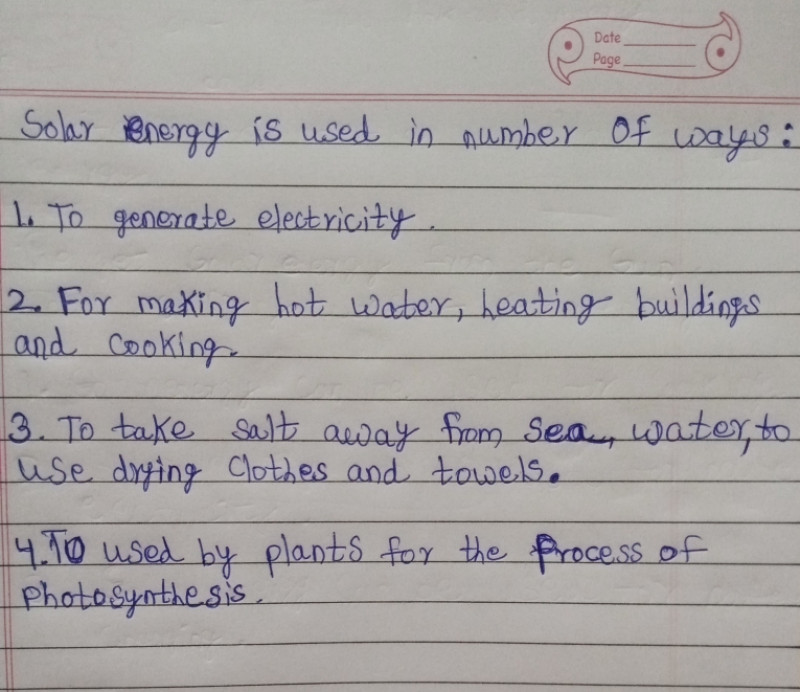 Date
Page
Solar energy is used in number of ways:
1. To generate electricity.
2. For making hot water, heating buildings
and cooking.
3. To take salt away from sea, water, to
use drying clothes and towels.
4. To used by plants for the process of
photosynthesis.